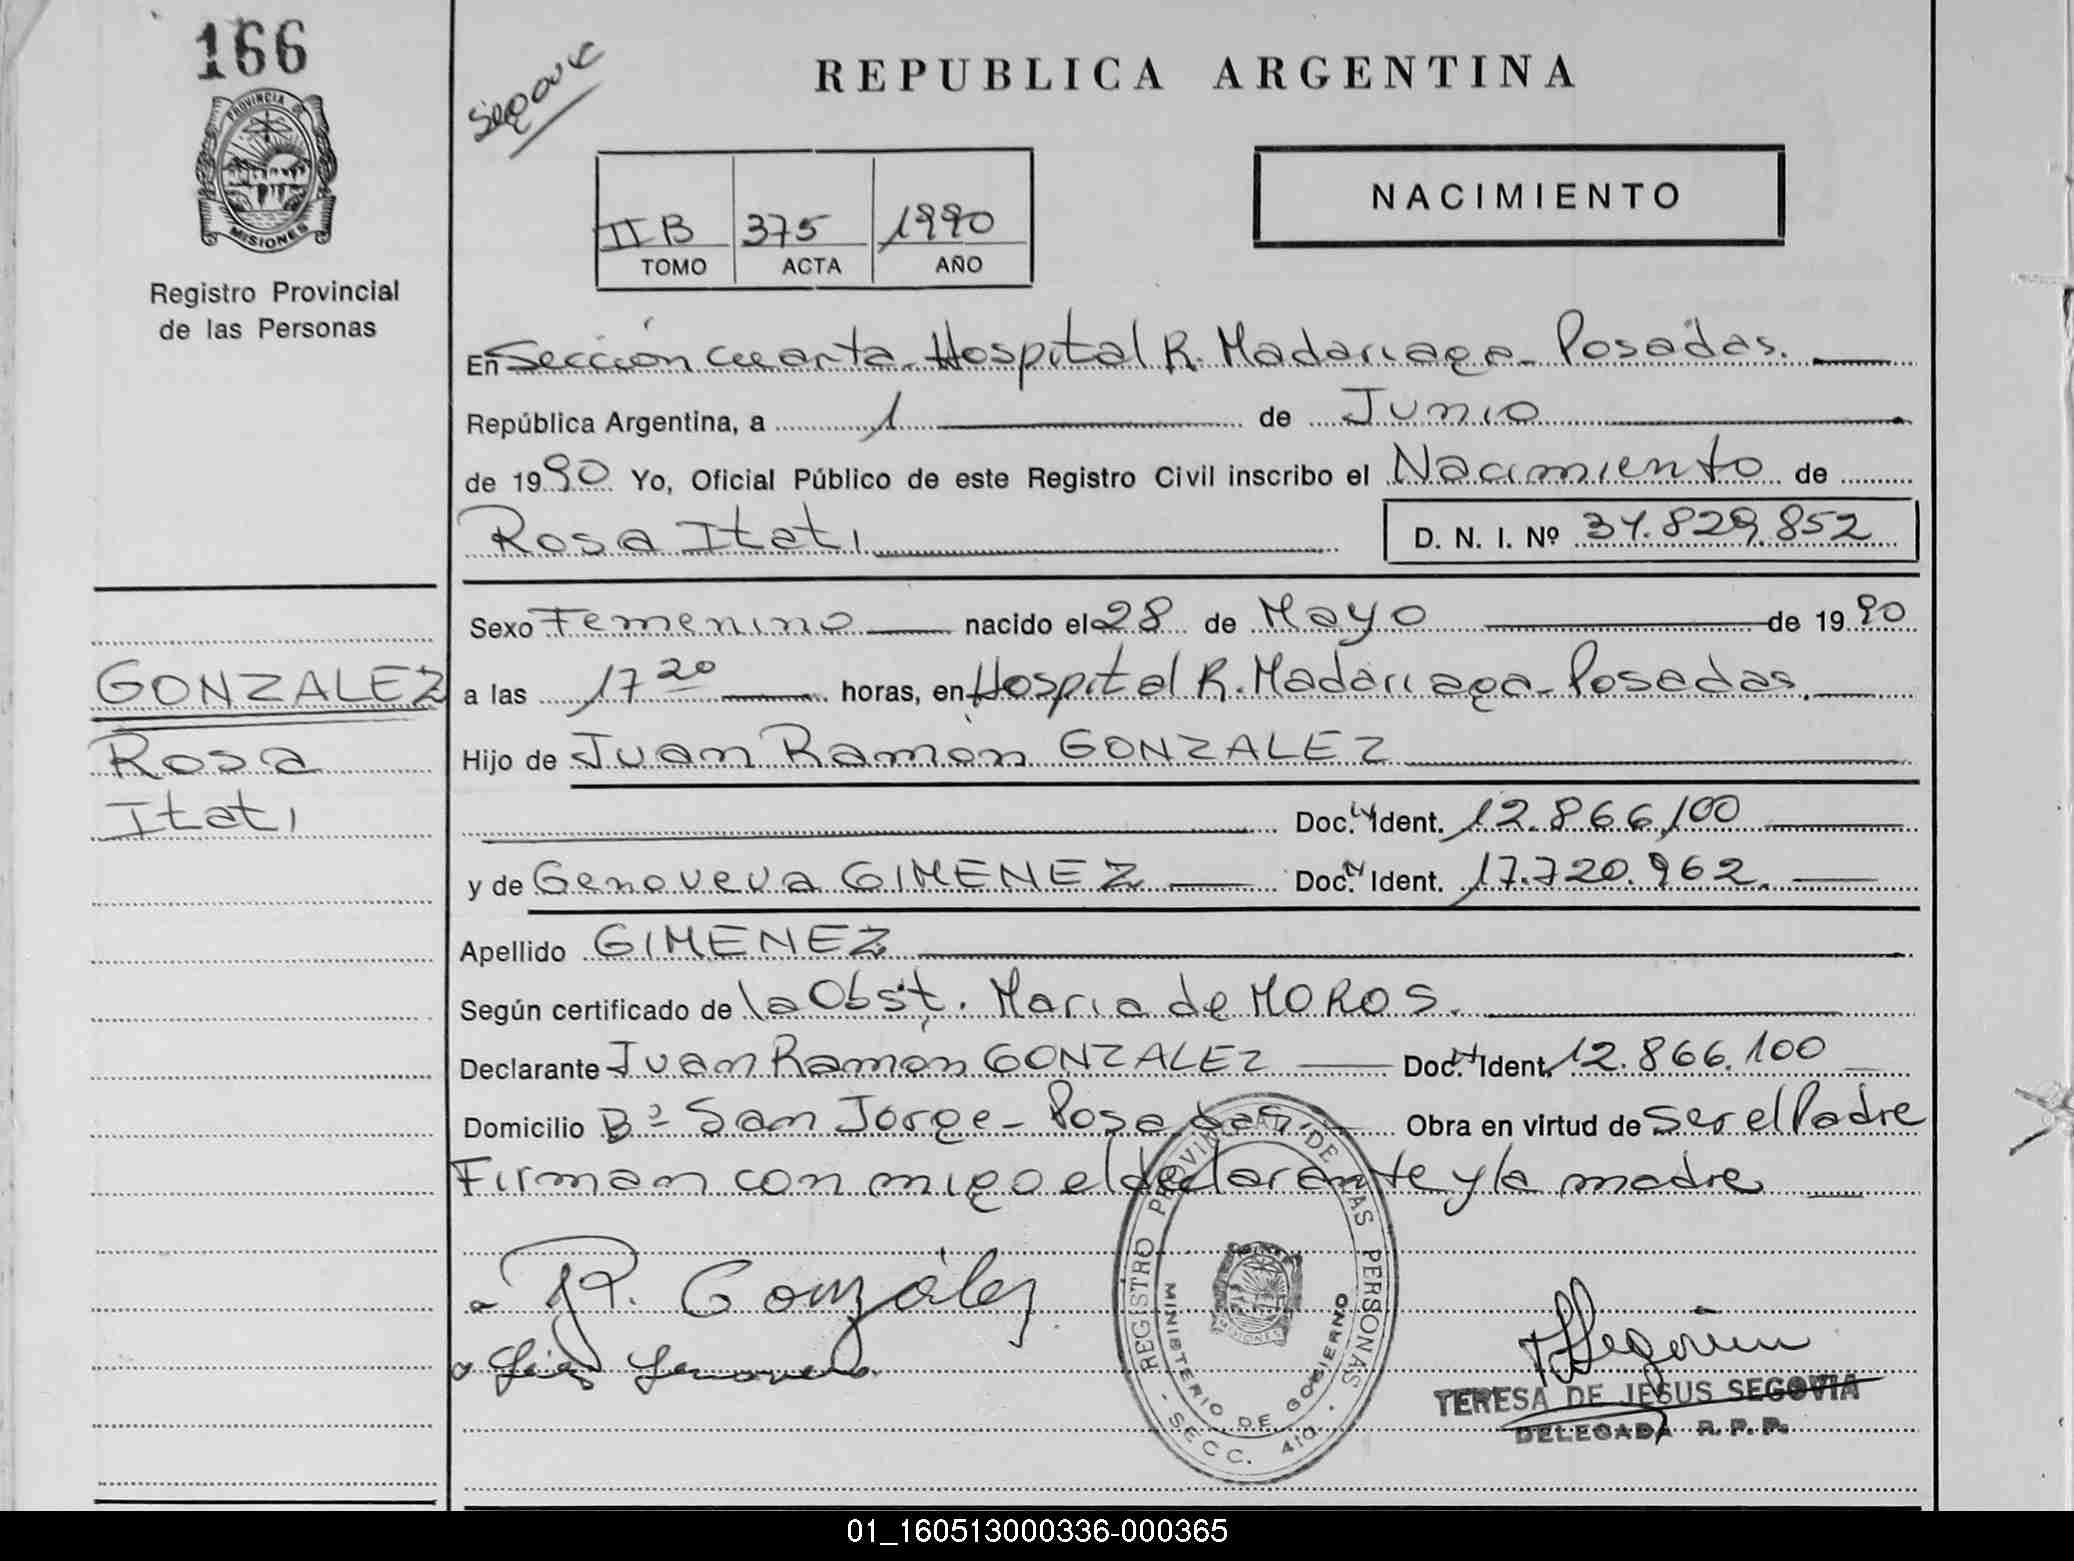 166
PROVINCIA DE
MISIONES
Registro Provincial
de las Personas
GONZALEZ
Rosa
Itatí
REPUBLICA ARGENTINA
II B 375 1990
TOMO ACTA AÑO
NACIMIENTO
En Sección cuarta. Hospital R. Madariaga - Posadas.
República Argentina, a 1 de Junio
de 1990 Yo, Oficial Público de este Registro Civil inscribo el Nacimiento de
Rosa Itatí D. N. I. Nº 34.829.852
Sexo Femenino nacido el 28 de Mayo de 1990
a las 17 20 horas, en Hospital R. Madariaga - Posadas.
Hijo de Juan Ramón GONZALEZ
Doc. Ident. 12.866.100
y de Genoveva GIMENEZ Doc. Ident. 17.720.962.
Apellido GIMENEZ
Según certificado de la Obst. Maria de MOROS.
Declarante Juan Ramon GONZALEZ Doc. Ident. 12.866.100
Domicilio Bº San Jorge - Posadas, Obra en virtud de Ser el Padre
Firman con migo el declarante y la madre
R. González
REGISTRO PROVINCIAL DE LAS PERSONAS
MINISTERIO DE GOBIERNO
MISIONES
- SECC. 4ta. -
TERESA DE JESUS SEGOVIA
DELEGADA R. P. P.
01_160513000336-000365